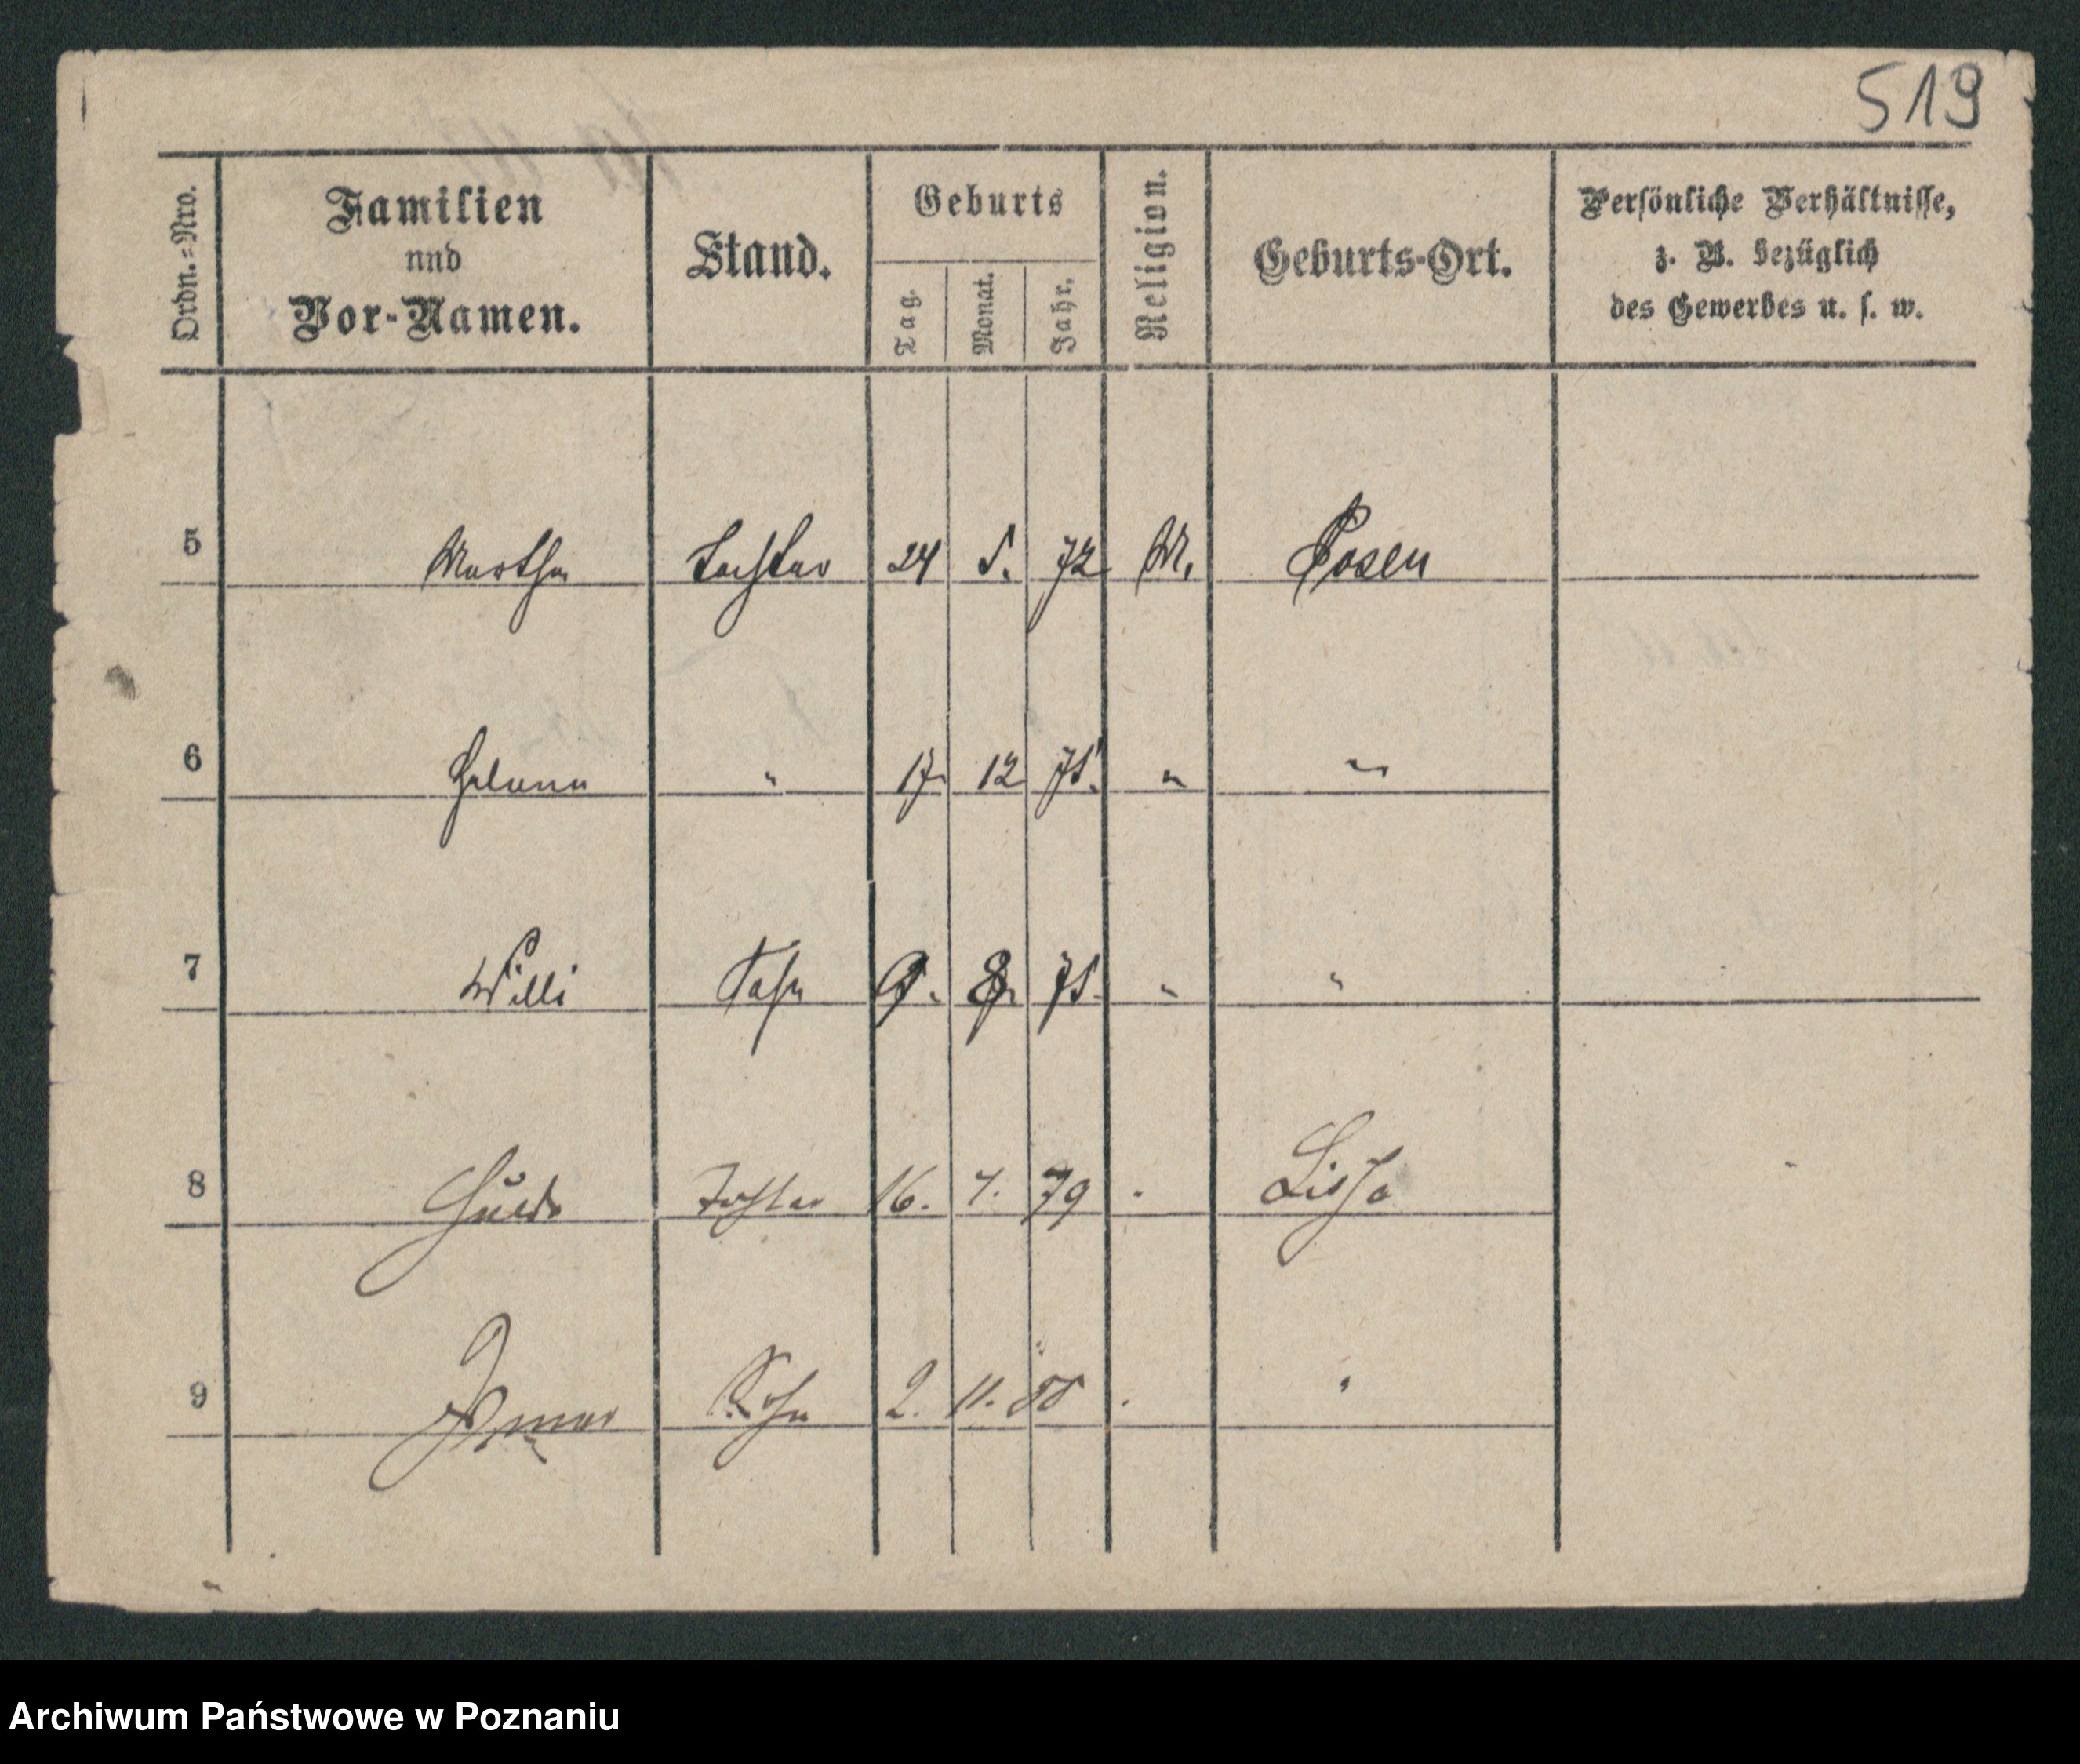 519
Ordn.=Nro.
Familien
und
Vor-Namen.
Stand.
Geburts
Tag.
Monat.
Jahr.
Religion.
Geburts-Ort.
Persönliche Verhältnisse,
z. B. bezüglich
des Gewerbes u. s. w.
5 Martha Tochter 24 5. 72 M. Posen
6 Helena " 17. 12 75. " "
7 Willi Sohn 9. 75. " "
8 Tochter 16. 7. 79 . Lissa
9 Sohn 2. 11. 88 . "
Archiwum Państwowe w Poznaniu